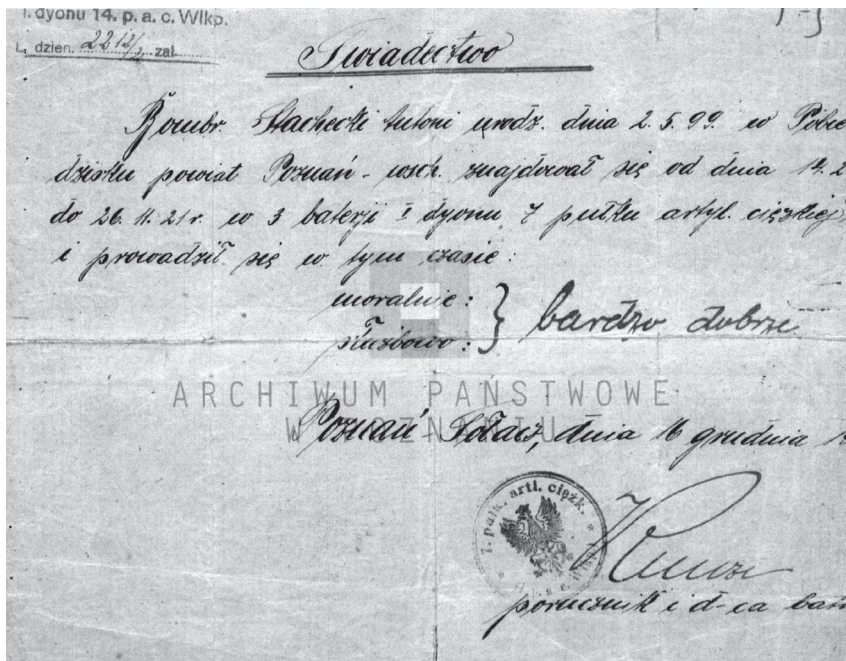 I. dyonu 14. p. a. c. Wlkp.
L. dzien. 2212/I zał.
Świadectwo
Bombr. Stachecki Antoni urodz. dnia 2. 5. 99. w Pobie
dzisku powiat Poznań - wsch. znajdował się od dnia 14. 2
do 26. 11. 21 r. w 3 baterji I dyonu 7 pułku artyl. ciężkiej
i prowadził się w tym czasie:
moralnie: } bardzo dobrze
służbowo:
ARCHIWUM PAŃSTWOWE
W POZNANIU
Poznań Sołacz, dnia 16 grudnia 1
pułk. arti. ciężk.
porucznik i d-ca bat